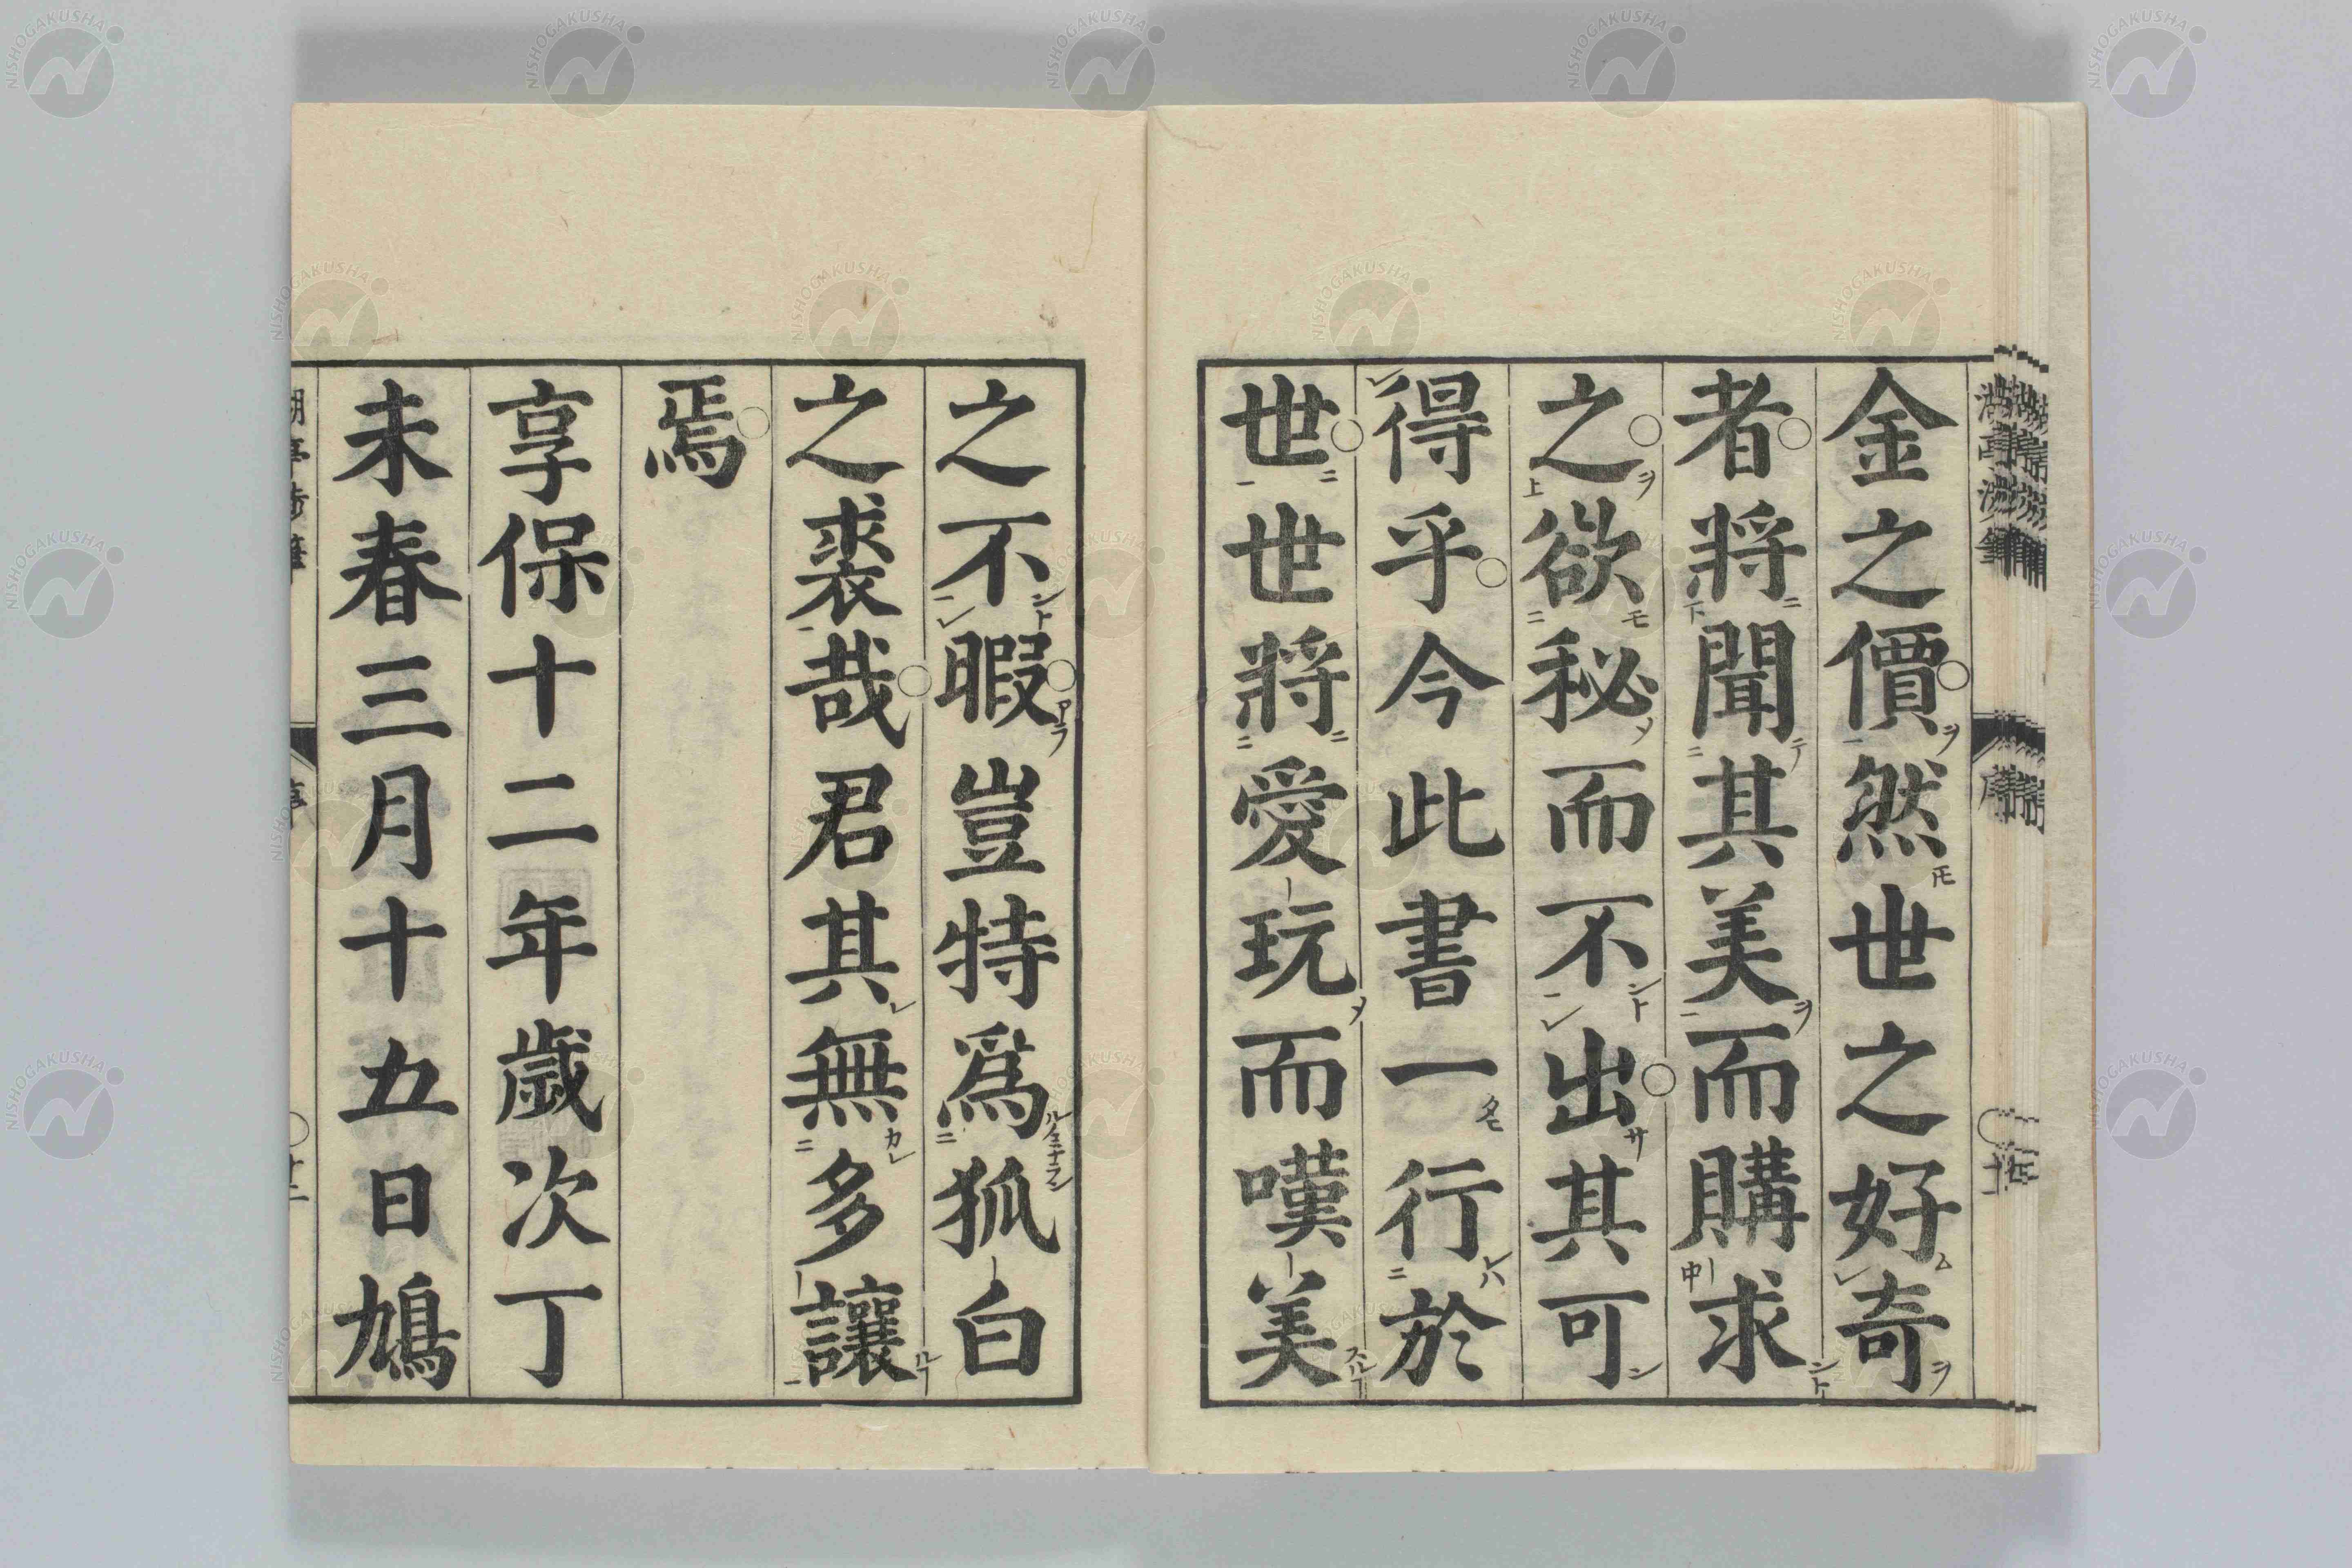 金之價然世之好奇
者將聞其美而購求
之欲秘而不出其可
得乎今此書一行於
世世將愛玩而嘆美
之不暇豈特爲狐白
之裘哉君其無多讓
焉
享保十二年歲次丁
未春三月十五日鳩